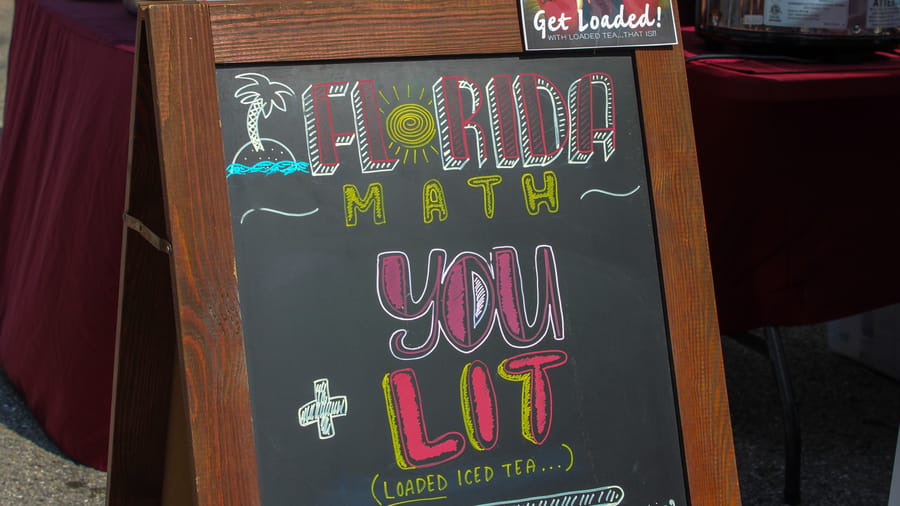 Get Loaded!
WITH LOADED TEA...THAT IS!!
FLORIDA
MATH
YOU
+ LIT
(LOADED ICED TEA...)